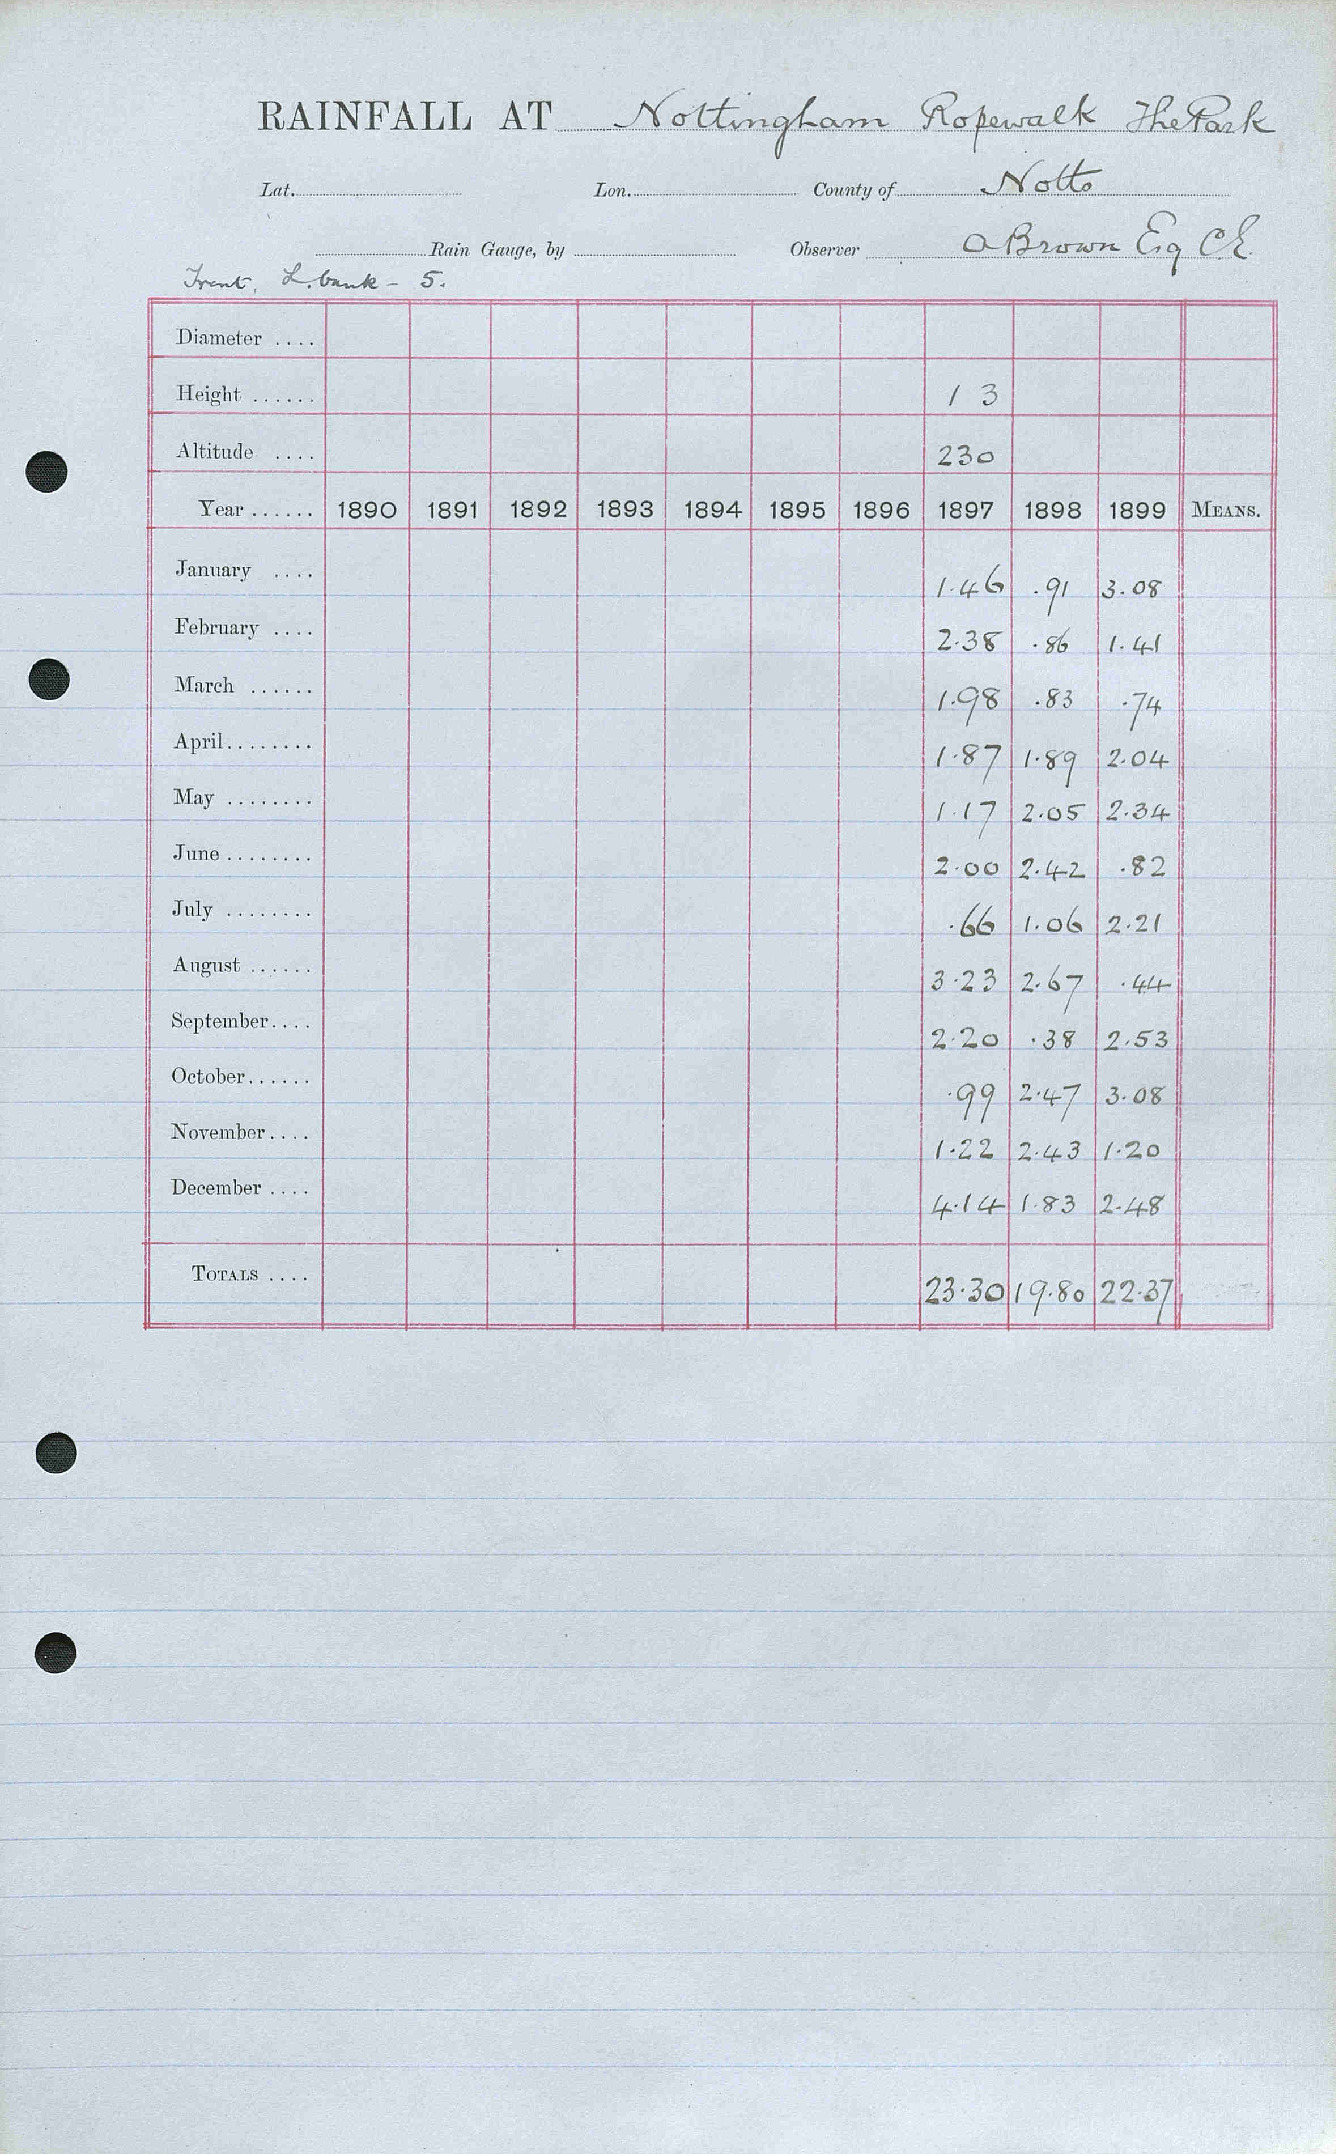 RAINFALL AT Nottingham Ropewalk The Park
Lat. Lon. County of Notts
Rain Gauge, by Observer A Brown Esq CE
Trent, L. bank - 5.
Diameter ....
Height ...... 1 3
Altitude .... 230
Year ...... 1890 1891 1892 1893 1894 1895 1896 1897 1898 1899 MEANS.
January .... 1.46 .91 3.08
February .... 2.38 .86 1.41
March ...... 1.98 .83 .74
April........ 1.87 1.89 2.04
May ........ 1.17 2.05 2.34
June ........ 2.00 2.42 .82
July ........ .66 1.06 2.21
August ...... 3.23 2.67 .44
September.... 2.20 .38 2.53
October...... .99 2.47 3.08
November.... 1.22 2.43 1.20
December .... 4.14 1.83 2.48
TOTALS .... 23.30 19.80 22.37